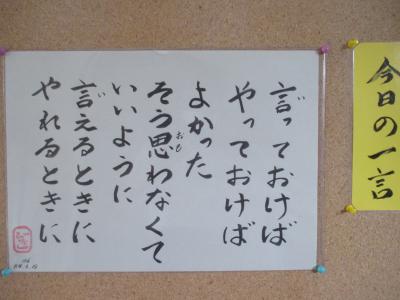 今日の一言
言っておけば
やっておけば
よかった
そう思わなくて
おも
いいように
言えるときに
やれるときに